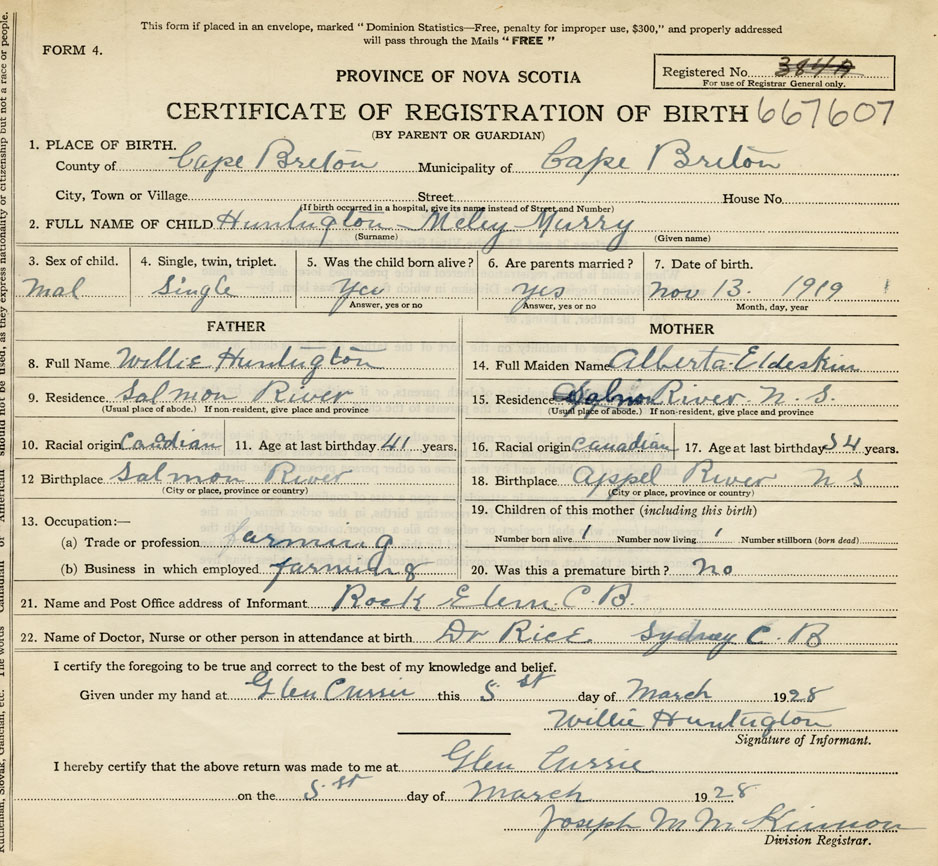 This form if placed in an envelope, marked "Dominion Statistics—Free, penalty for improper use, $300," and properly addressed
will pass through the Mails "FREE"
FORM 4.
Registered No. 384A
For use of Registrar General only.
PROVINCE OF NOVA SCOTIA
CERTIFICATE OF REGISTRATION OF BIRTH 667607
(BY PARENT OR GUARDIAN)
1. PLACE OF BIRTH.
County of Cape Breton Municipality of Cape Breton
City, Town or Village Street House No.
(If birth occurred in a hospital, give its name instead of Street and Number)
2. FULL NAME OF CHILD Huntington Meley Murry
(Surname) (Given name)
3. Sex of child. 4. Single, twin, triplet. 5. Was the child born alive? 6. Are parents married? 7. Date of birth.
Mal Single Yes yes Nov 13. 1919
Answer, yes or no Answer, yes or no Month, day, year
FATHER MOTHER
8. Full Name Willie Huntington 14. Full Maiden Name Alberta Eldeskin
9. Residence. Salmon River 15. Residence Salmon River N. S.
(Usual place of abode.) If non-resident, give place and province (Usual place of abode.) If non-resident, give place and province
10. Racial origin Candian 11. Age at last birthday 41 years. 16. Racial origin Canadian 17. Age at last birthday 34 years.
12 Birthplace Salmon River 18. Birthplace Appel River N S
(City or place, province or country) (City or place, province or country)
19. Children of this mother (including this birth)
13. Occupation:—
(a) Trade or profession farming Number born alive 1 Number now living 1 Number stillborn (born dead)
(b) Business in which employed farming 20. Was this a premature birth? no
21. Name and Post Office address of Informant Rock Elem C. B.
22. Name of Doctor, Nurse or other person in attendance at birth Dr Rice Sydney C. B
I certify the foregoing to be true and correct to the best of my knowledge and belief.
Given under my hand at Glen Currie this 5 st day of March 1928
Willie Huntington
Signature of Informant.
I hereby certify that the above return was made to me at Glen Currie
on the 5 st day of March 1928
Joseph M McKinnon
Division Registrar.